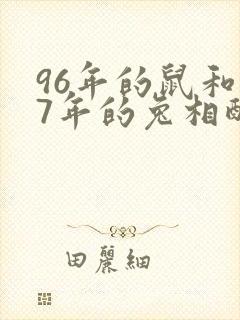 96年的鼠和
7年的兔相配
田麗細